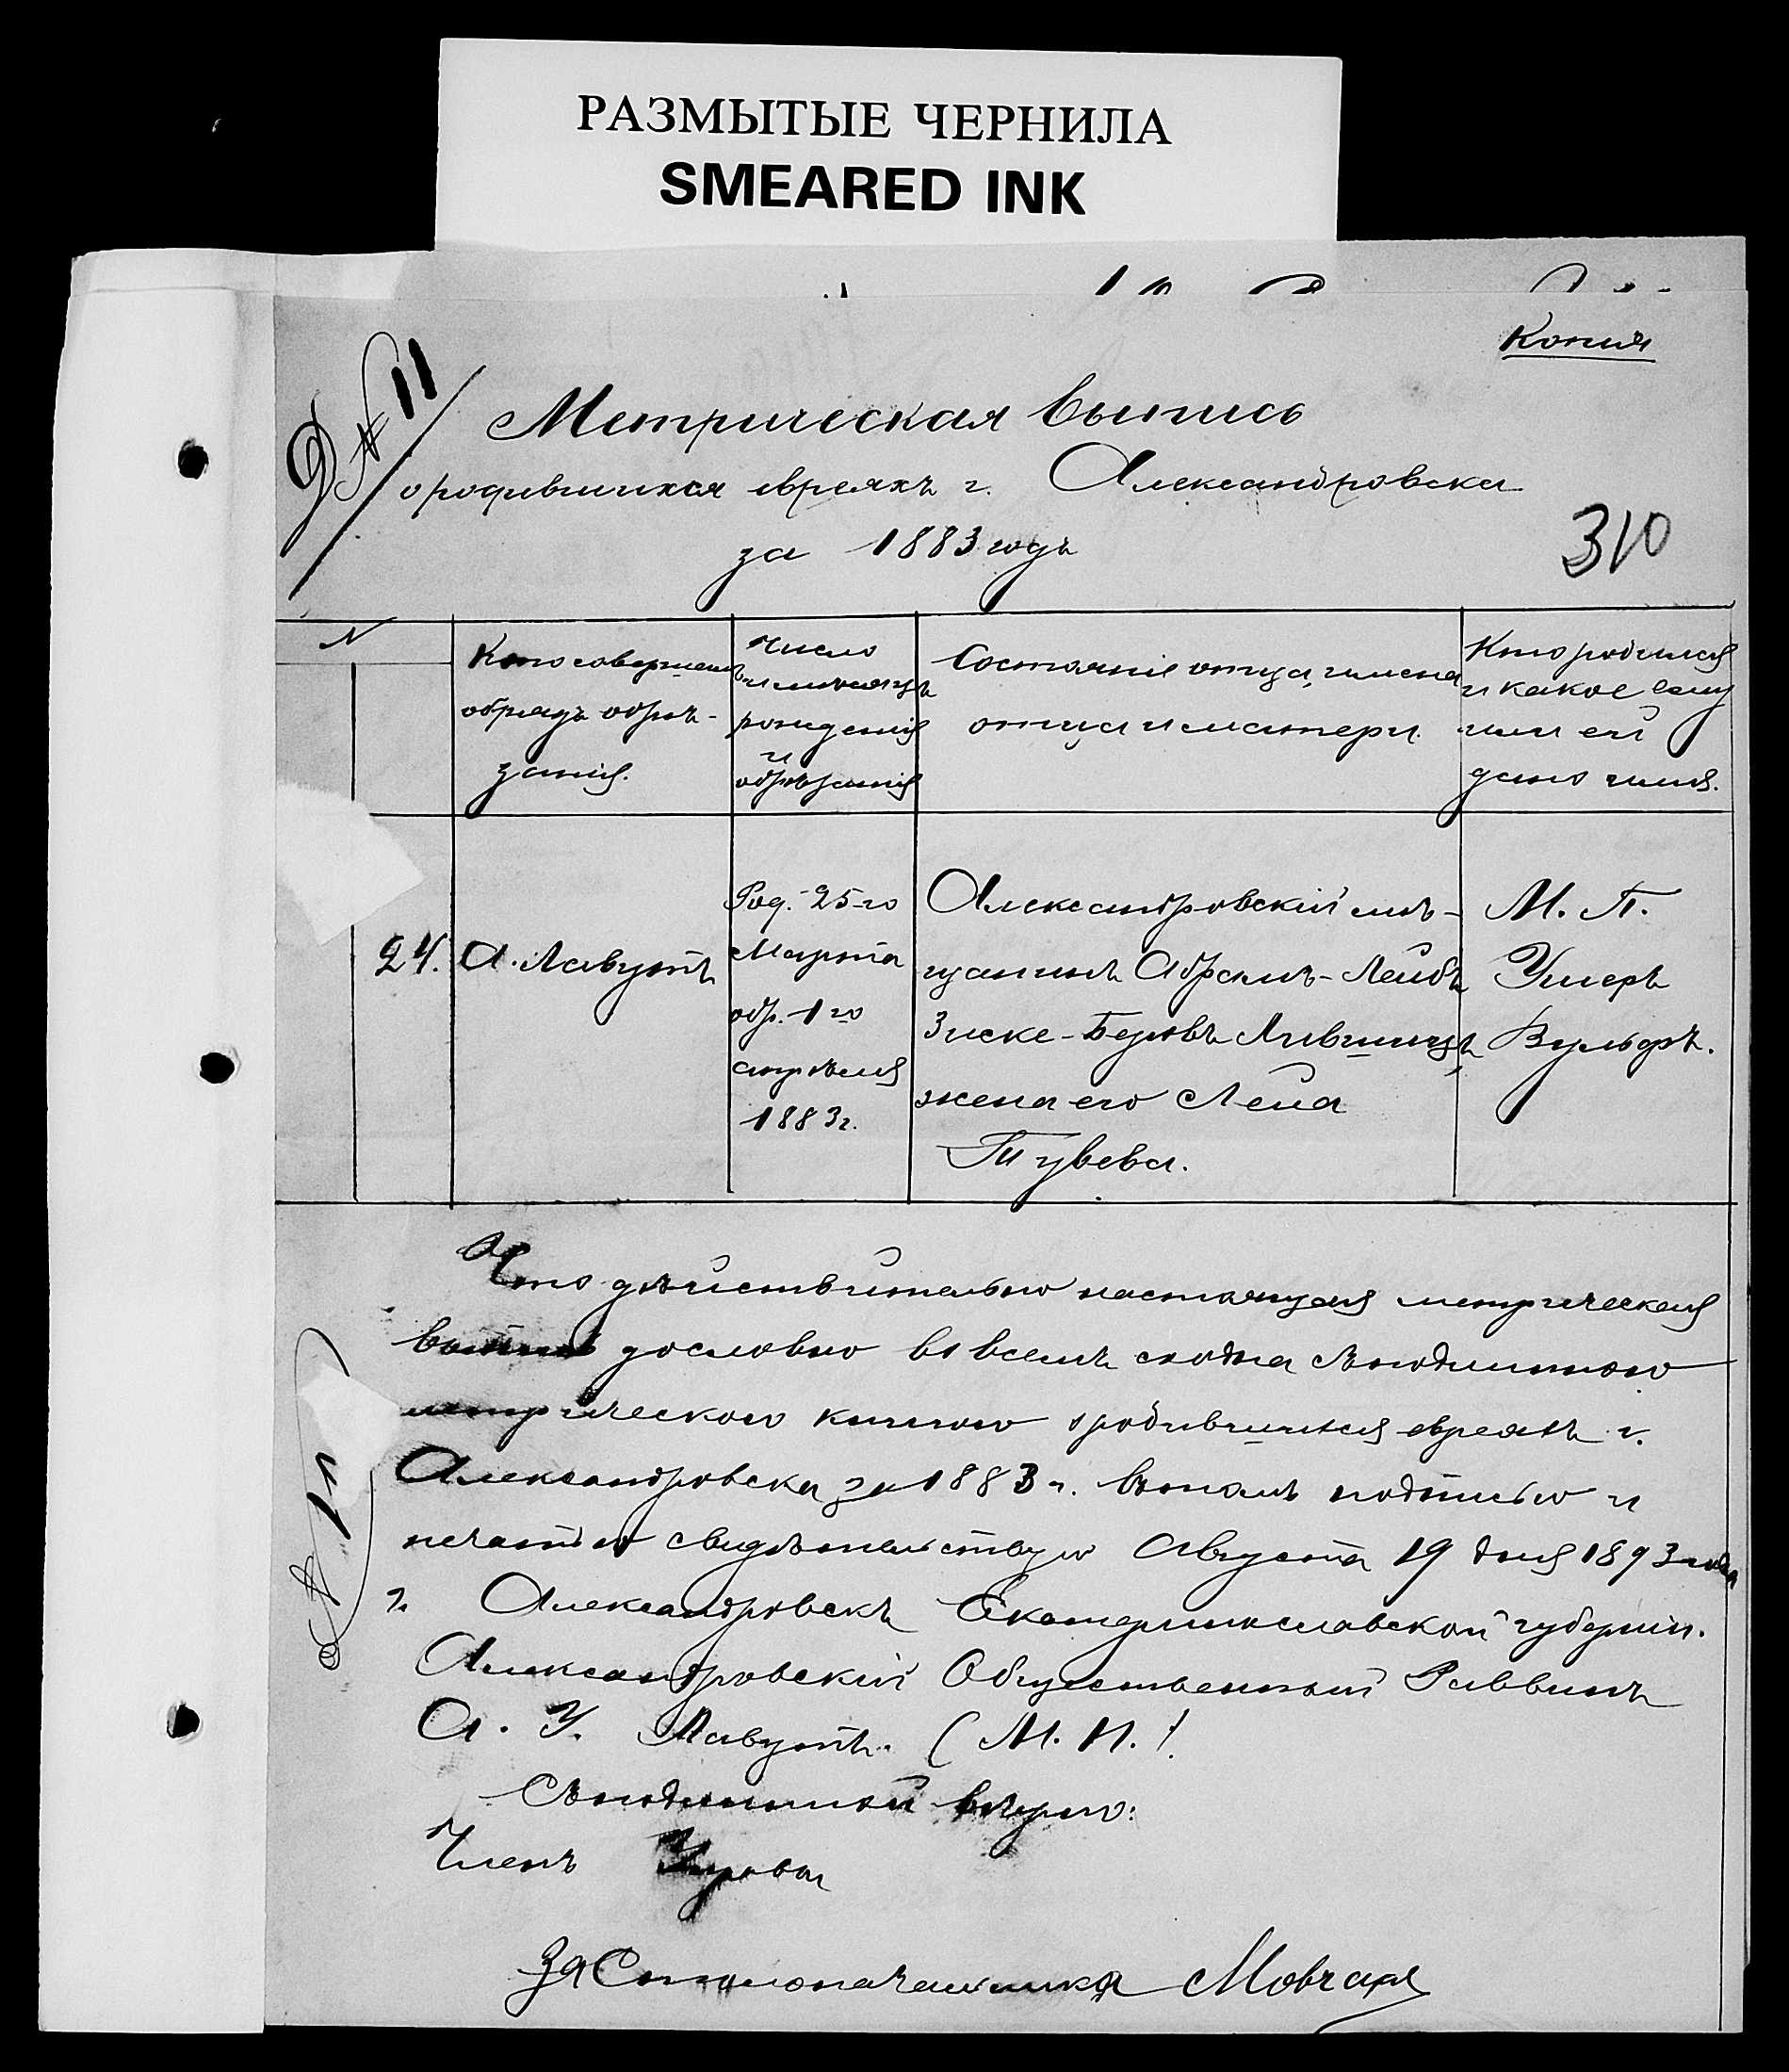 РАЗМЫТЫЕ ЧЕРНИЛА
SMEARED INK
Копия
№ 11
Метрическая выпись
о родившихся евреяхъ г. Александровска
за 1883 годъ
310
N
Кто совершалъ
обрядъ обрѣ-
занія.
Число
и мѣсяцъ
рожденія
и
обрѣзанія
Состояніе отца, имена
отца и матери.
Кто родился
и какое ему
или ей
дано имя.
24.
А. Лавутъ
Род. 25-го
Марта
обр. 1го
апрѣля
1883г.
Александровскій мѣ-
щанинъ Абрамъ-Лейбъ
Зиске-Беровъ Лившицъ,
жена его Лея
Тувева.
М. П.
Ушеръ
Вульфъ.
Что дѣйствительно настоящая метрическая
выпись дословно во всемъ сходна съ подлинною
метрическою книгою о родившихся евреяхъ г.
Александровска за 1883 г. въ томъ подписью и
печатью свидѣтельствую Августа 19 дня 1893 года
г. Александровскъ Екатеринославской губерніи.
Александровскій Общественный Раввинъ
А. У. Лавутъ. (М. П.)
Съ подлиннымъ вѣрно:
Членъ Управы
За Столоначальника Мовчан